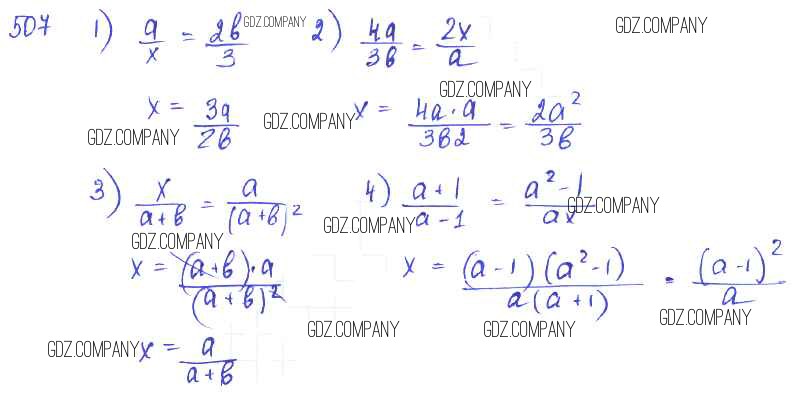 507 1) a/x = 2в/3 GDZ.COMPANY 2) 4а/3в = 2x/a GDZ.COMPANY
GDZ.COMPANY
x = 3a/2в GDZ.COMPANY x = 4a·a/3в2 = 2a²/3в
GDZ.COMPANY
3) x/a+в = a/(a+в)² 4) a+1/a-1 = a²-1/ax GDZ.COMPANY
GDZ.COMPANY
GDZ.COMPANY
x = (a+в)·a/(a+в)² x = (a-1)(a²-1)/a(a+1) = (a-1)²/a
GDZ.COMPANY GDZ.COMPANY GDZ.COMPANY
GDZ.COMPANY x = a/a+в